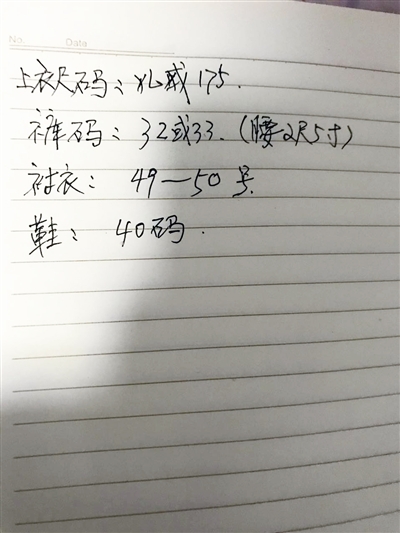 No.
Date
上衣尺码：XL或175.
裤码：32或33.（腰2尺5寸）
衬衣：49—50号.
鞋：40码.